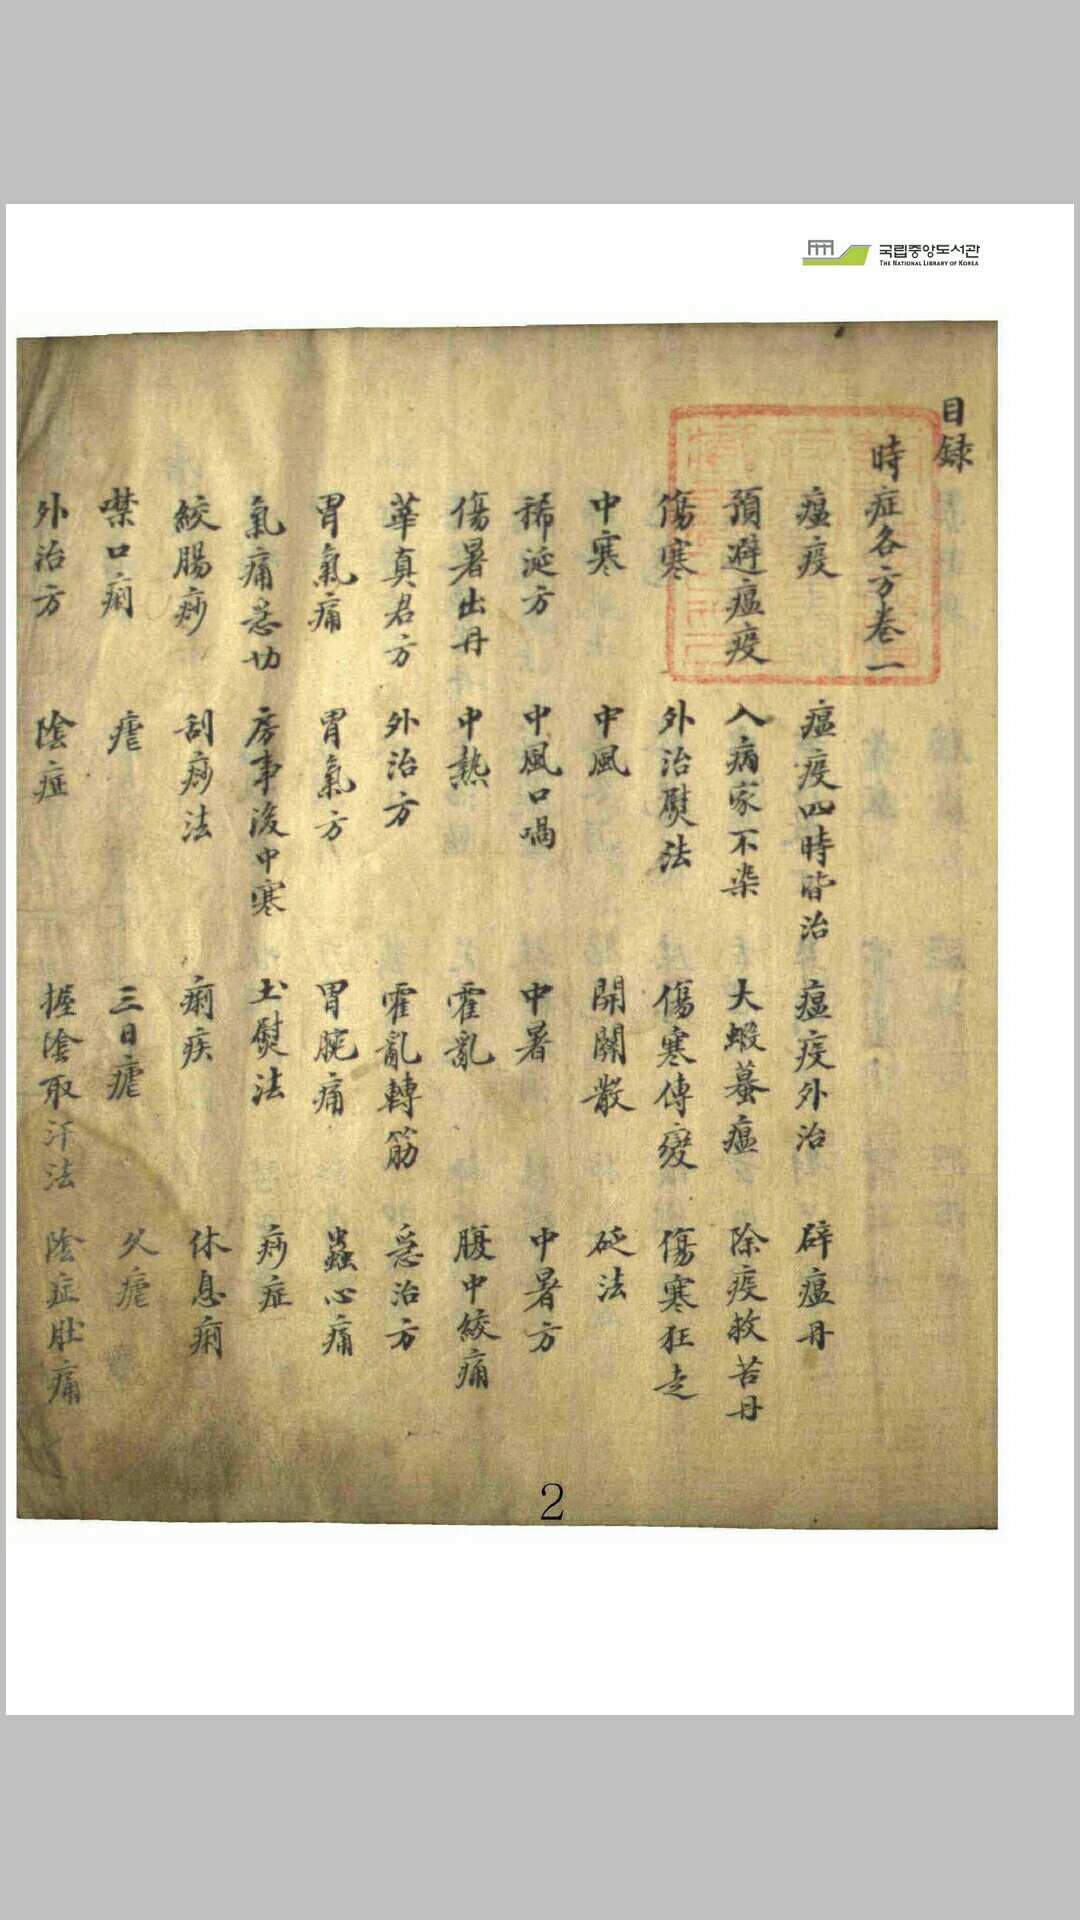 국립중앙도서관
THE NATIONAL LIBRARY OF KOREA
目録
時症各方卷一
瘟疫 瘟疫四時皆治 瘟疫外治 辟瘟丹
預避瘟疫 入病家不染 大蝦蟇瘟 除疫救苦丹
傷寒 外治熨法 傷寒傳變 傷寒狂走
中寒 中風 開關散 砭法
稀涎方 中風口喎 中暑 中暑方
傷暑出丹 中熱 霍亂 腹中絞痛
華真君方 外治方 霍亂轉筋 急治方
胃氣痛 胃氣方 胃脘痛 蟲心痛
氣痛急切 房事後中寒 土熨法 痧症
絞腸痧 刮痧法 痢疾 休息痢
噤口痢 瘧 三日瘧 久瘧
外治方 陰症 握陰取汗法 陰症肚痛
2